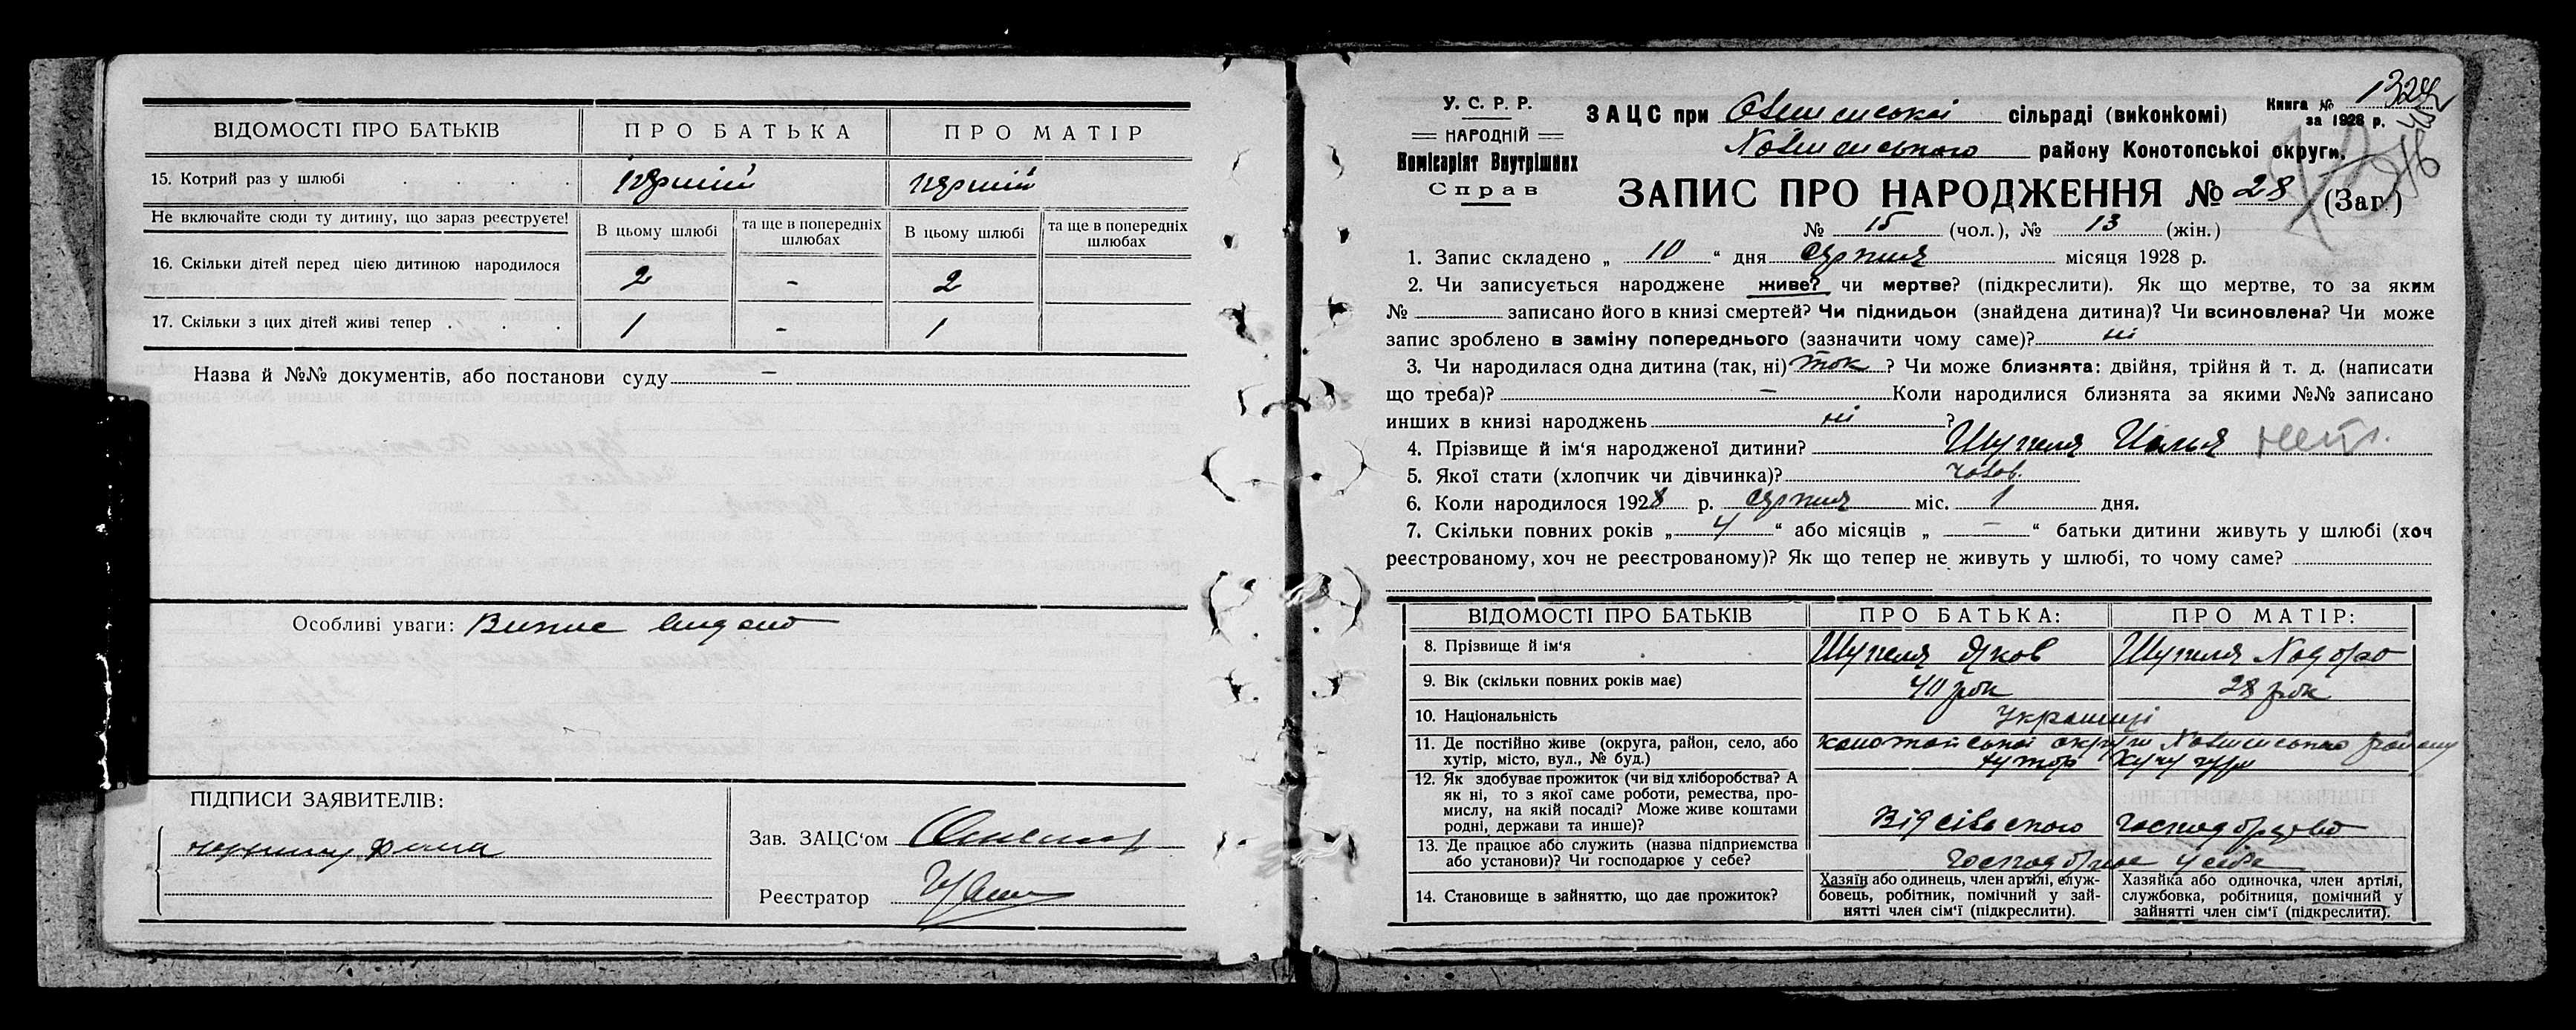 ВІДОМОСТІ ПРО БАТЬКІВ
ПРО БАТЬКА
ПРО МАТІР
15. Котрий раз у шлюбі . . . .
першій
першій
Не включайте сюди ту дитину, що зараз реєструєте!
В цьому шлюбі
та ще в попередніх шлюбах
В цьому шлюбі
та ще в попередніх шлюбах
16. Скільки дітей перед цією дитиною народилося
2
-
2
17. Скільки з цих дітей живі тепер . . .
1
-
1
Назва й №№ документів, або постанови суду –
Особливі уваги: Випис видано
ПІДПИСИ ЗАЯВИТЕЛІВ:
Зав. ЗАЦС‘ом
Реєстратор
У. С. Р. Р.
НАРОДНІЙ
Комісаріят Внутрішних
Справ
ЗАЦС при сільраді (виконкомі)
Книга №
за 1928 р.
району Конотопської округи.
ЗАПИС ПРО НАРОДЖЕННЯ № 28 (Заг.)
№ 15 (чол.), № 13 (жін.)
1. Запис складено „ 10 “ дня серпня місяця 1928 р.
2. Чи записується народжене живе? чи мертве? (підкреслити). Як що мертве, то за яким
№ записано його в книзі смертей? Чи підкидьок (знайдена дитина)? Чи всиновлена? Чи може
запис зроблено в заміну попереднього (зазначити чому саме)? ні
3. Чи народилася одна дитина (так, ні) так ? Чи може близнята: двійня, трійня й т. д. (написати
що треба)? – Коли народилися близнята за якими №№ записано
инших в книзі народжень ні ?
4. Прізвище й ім‘я народженої дитини? Шупеля Илья
5. Якої стати (хлопчик чи дівчинка)? чолов.
6. Коли народилося 1928 р. серпня міс. 1 дня.
7. Скільки повних років „ 4 “ або місяців „ – “ батьки дитини живуть у шлюбі (хоч
реєстрованому, хоч не реєстрованому)? Як що тепер не живуть у шлюбі, то чому саме?
ВІДОМОСТІ ПРО БАТЬКІВ
ПРО БАТЬКА:
ПРО МАТІР:
8. Прізвище й ім‘я
Шупеля Яков
Шупеля Ходора
9. Вік (скільки повних років має)
40 рок
28 рок
10. Національність
Украинці
11. Де постійно живе (округа, район, село, або
хутір, місто, вул., № буд.)
Конотопської округи району
хутор
12. Як здобуває прожиток (чи від хліборобства? А
як ні, то з якої саме роботи, ремества, про-
мислу, на якій посаді? Може живе коштами
родні, держави та инше)?
Від сільского Господарства
13. Де працює або служить (назва підприємства
або установи)? Чи господарює у себе?
Господарює у себе
14. Становище в зайняттю, що дає прожиток?
Хазяїн або одинець, член артілі, служ-
бовець, робітник, помічний у зай-
нятті член сім‘ї (підкреслити).
Хазяйка або одиночка, член артілі,
службовка, робітниця, помічний у
зайнятті член сім‘ї (підкреслити).